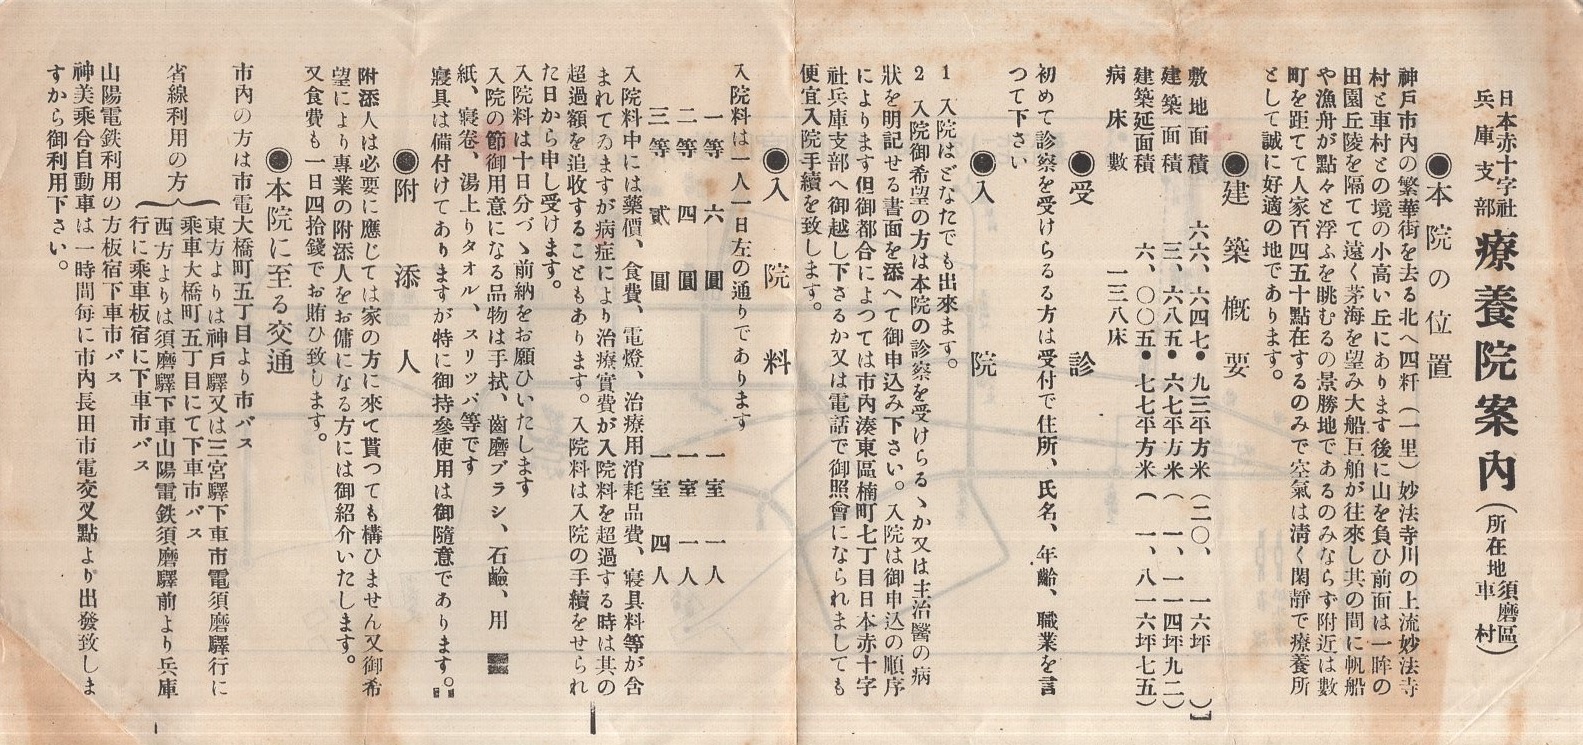 日本赤十字社
兵庫支部
療養院案內
(所在地 須磨區
車村)
●本院の位置
神戶市內の繁華街を去る北へ四粁(一里)妙法寺川の上流妙法寺
村と車村との境の小高い丘にあります後に山を負ひ前面は一眸の
田園丘陵を隔てて遠く茅海を望み大船巨舶が往來し其の間に帆船
や漁舟が點々と浮ふを眺むるの景勝地であるのみならず附近は數
町を距てて人家百四五十點在するのみで空氣は淸く閑靜で療養所
として誠に好適の地であります。
●建築槪要
敷地面積 六六、六四七・九三平方米(二〇、一六坪 )
建築面積 三、六八五・六七平方米(一、一一四坪九二)
建築延面積 六、〇〇五・七七平方米(一、八一六坪七五)
病床數 一三八床
●受診
初めて診察を受けらるる方は受付で住所、氏名、年齡、職業を言
つて下さい
●入院
1 入院はどなたでも出來ます。
2 入院御希望の方は本院の診察を受けらるゝか又は主治醫の病
狀を明記せる書面を添へて御申込み下さい。入院は御申込の順序
によります但御都合によつては市內湊東區楠町七丁目日本赤十字
社兵庫支部へ御越し下さるか又は電話で御照會になられましても
便宜入院手續を致します。
●入院料
入院料は一人一日左の通りであります
一等 六圓 一室 一人
二等 四圓 一室 一人
三等 貳圓 一室 四人
入院料中には藥價、食費、電燈、治療用消耗品費、寢具料等が含
まれてゐますが病症により治療實費が入院料を超過する時は其の
超過額を追收することもあります。入院料は入院の手續をせられ
た日から申し受けます。
入院料は十日分づゝ前納をお願ひいたします
入院の節御用意になる品物は手拭、齒磨ブラシ、石鹼、用
紙、寢卷、湯上りタオル、スリッパ等です
寢具は備付けてありますが特に御持參使用は御隨意であります。
●附添人
附添人は必要に應じては家の方に來て貰つても構ひません又御希
望により專業の附添人をお傭になる方には御紹介いたします。
又食費も一日四拾錢でお賄ひ致します。
●本院に至る交通
市內の方は市電大橋町五丁目より市バス
省線利用の方
東方よりは神戶驛又は三宮驛下車市電須磨驛行に
乘車大橋町五丁目にて下車市バス
西方よりは須磨驛下車山陽電鉄須磨驛前より兵庫
行に乘車板宿に下車市バス
山陽電鉄利用の方板宿下車市バス
神美乘合自動車は一時間每に市內長田市電交叉點より出發致しま
すから御利用下さい。